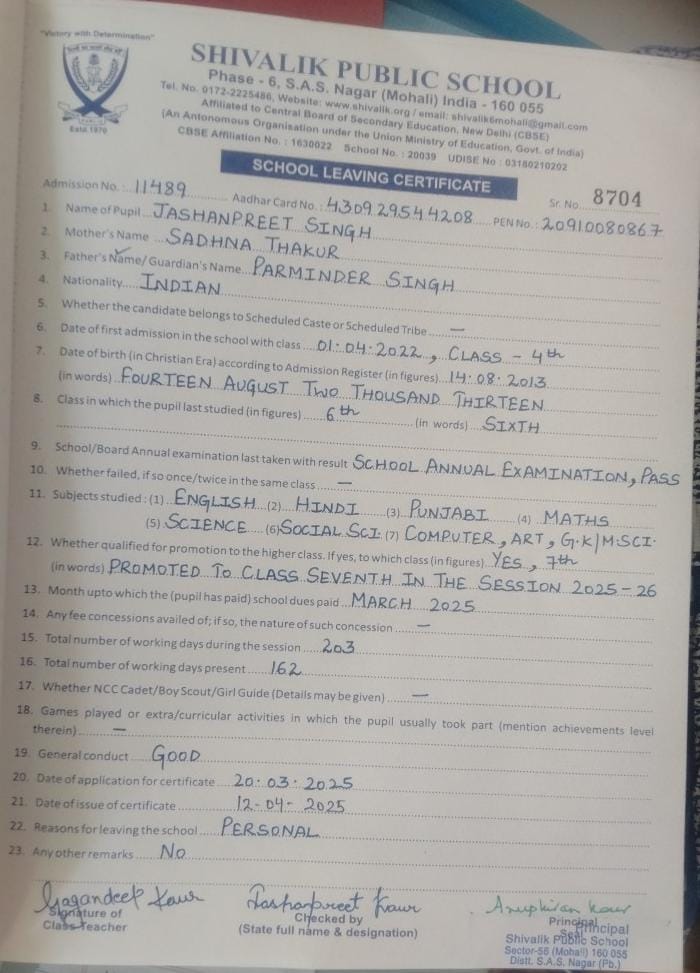 "Victory with Determination"
Estd.1970
SHIVALIK PUBLIC SCHOOL
Phase - 6, S.A.S. Nagar (Mohali) India - 160 055
Tel. No. 0172-2225486, Website: www.shivalik.org / email: shivalik6mohali@gmail.com
Affiliated to Central Board of Secondary Education, New Delhi (CBSE)
(An Antonomous Organisation under the Union Ministry of Education, Govt. of India)
CBSE Affiliation No. : 1630022 School No. : 20039 UDISE No : 03180210202
SCHOOL LEAVING CERTIFICATE
Sr. No. 8704
Admission No.: 11489 Aadhar Card No.: 430929544208 PEN No.: 20910080867
1. Name of Pupil JASHANPREET SINGH
2. Mother's Name SADHNA THAKUR
3. Father's Name/ Guardian's Name PARMINDER SINGH
4. Nationality INDIAN
5. Whether the candidate belongs to Scheduled Caste or Scheduled Tribe —
6. Date of first admission in the school with class 01.04.2022, CLASS - 4th
7. Date of birth (in Christian Era) according to Admission Register (in figures) 14.08.2013
(in words) FOURTEEN AUGUST TWO THOUSAND THIRTEEN
8. Class in which the pupil last studied (in figures) 6th (in words) SIXTH
9. School/Board Annual examination last taken with result SCHOOL ANNUAL EXAMINATION, PASS
10. Whether failed, if so once/twice in the same class —
11. Subjects studied : (1) ENGLISH (2) HINDI (3) PUNJABI (4) MATHS
(5) SCIENCE (6) SOCIAL SCI. (7) COMPUTER, ART, G.K/M.SCI.
12. Whether qualified for promotion to the higher class. If yes, to which class (in figures) YES, 7th
(in words) PROMOTED TO CLASS SEVENTH IN THE SESSION 2025-26
13. Month upto which the (pupil has paid) school dues paid MARCH 2025
14. Any fee concessions availed of; if so, the nature of such concession —
15. Total number of working days during the session 203
16. Total number of working days present 162
17. Whether NCC Cadet/Boy Scout/Girl Guide (Details may be given) —
18. Games played or extra/curricular activities in which the pupil usually took part (mention achievements level
therein) —
19. General conduct GOOD
20. Date of application for certificate 20.03.2025
21. Date of issue of certificate 12-04-2025
22. Reasons for leaving the school PERSONAL
23. Any other remarks NO
Gagandeep Kaur Jashanpreet Kaur Anupkiran Kaur
Signature of Checked by Principal
Class Teacher (State full name & designation) Seal
Principal
Shivalik Public School
Sector-56 (Mohali) 160 055
Distt. S.A.S. Nagar (Pb.)